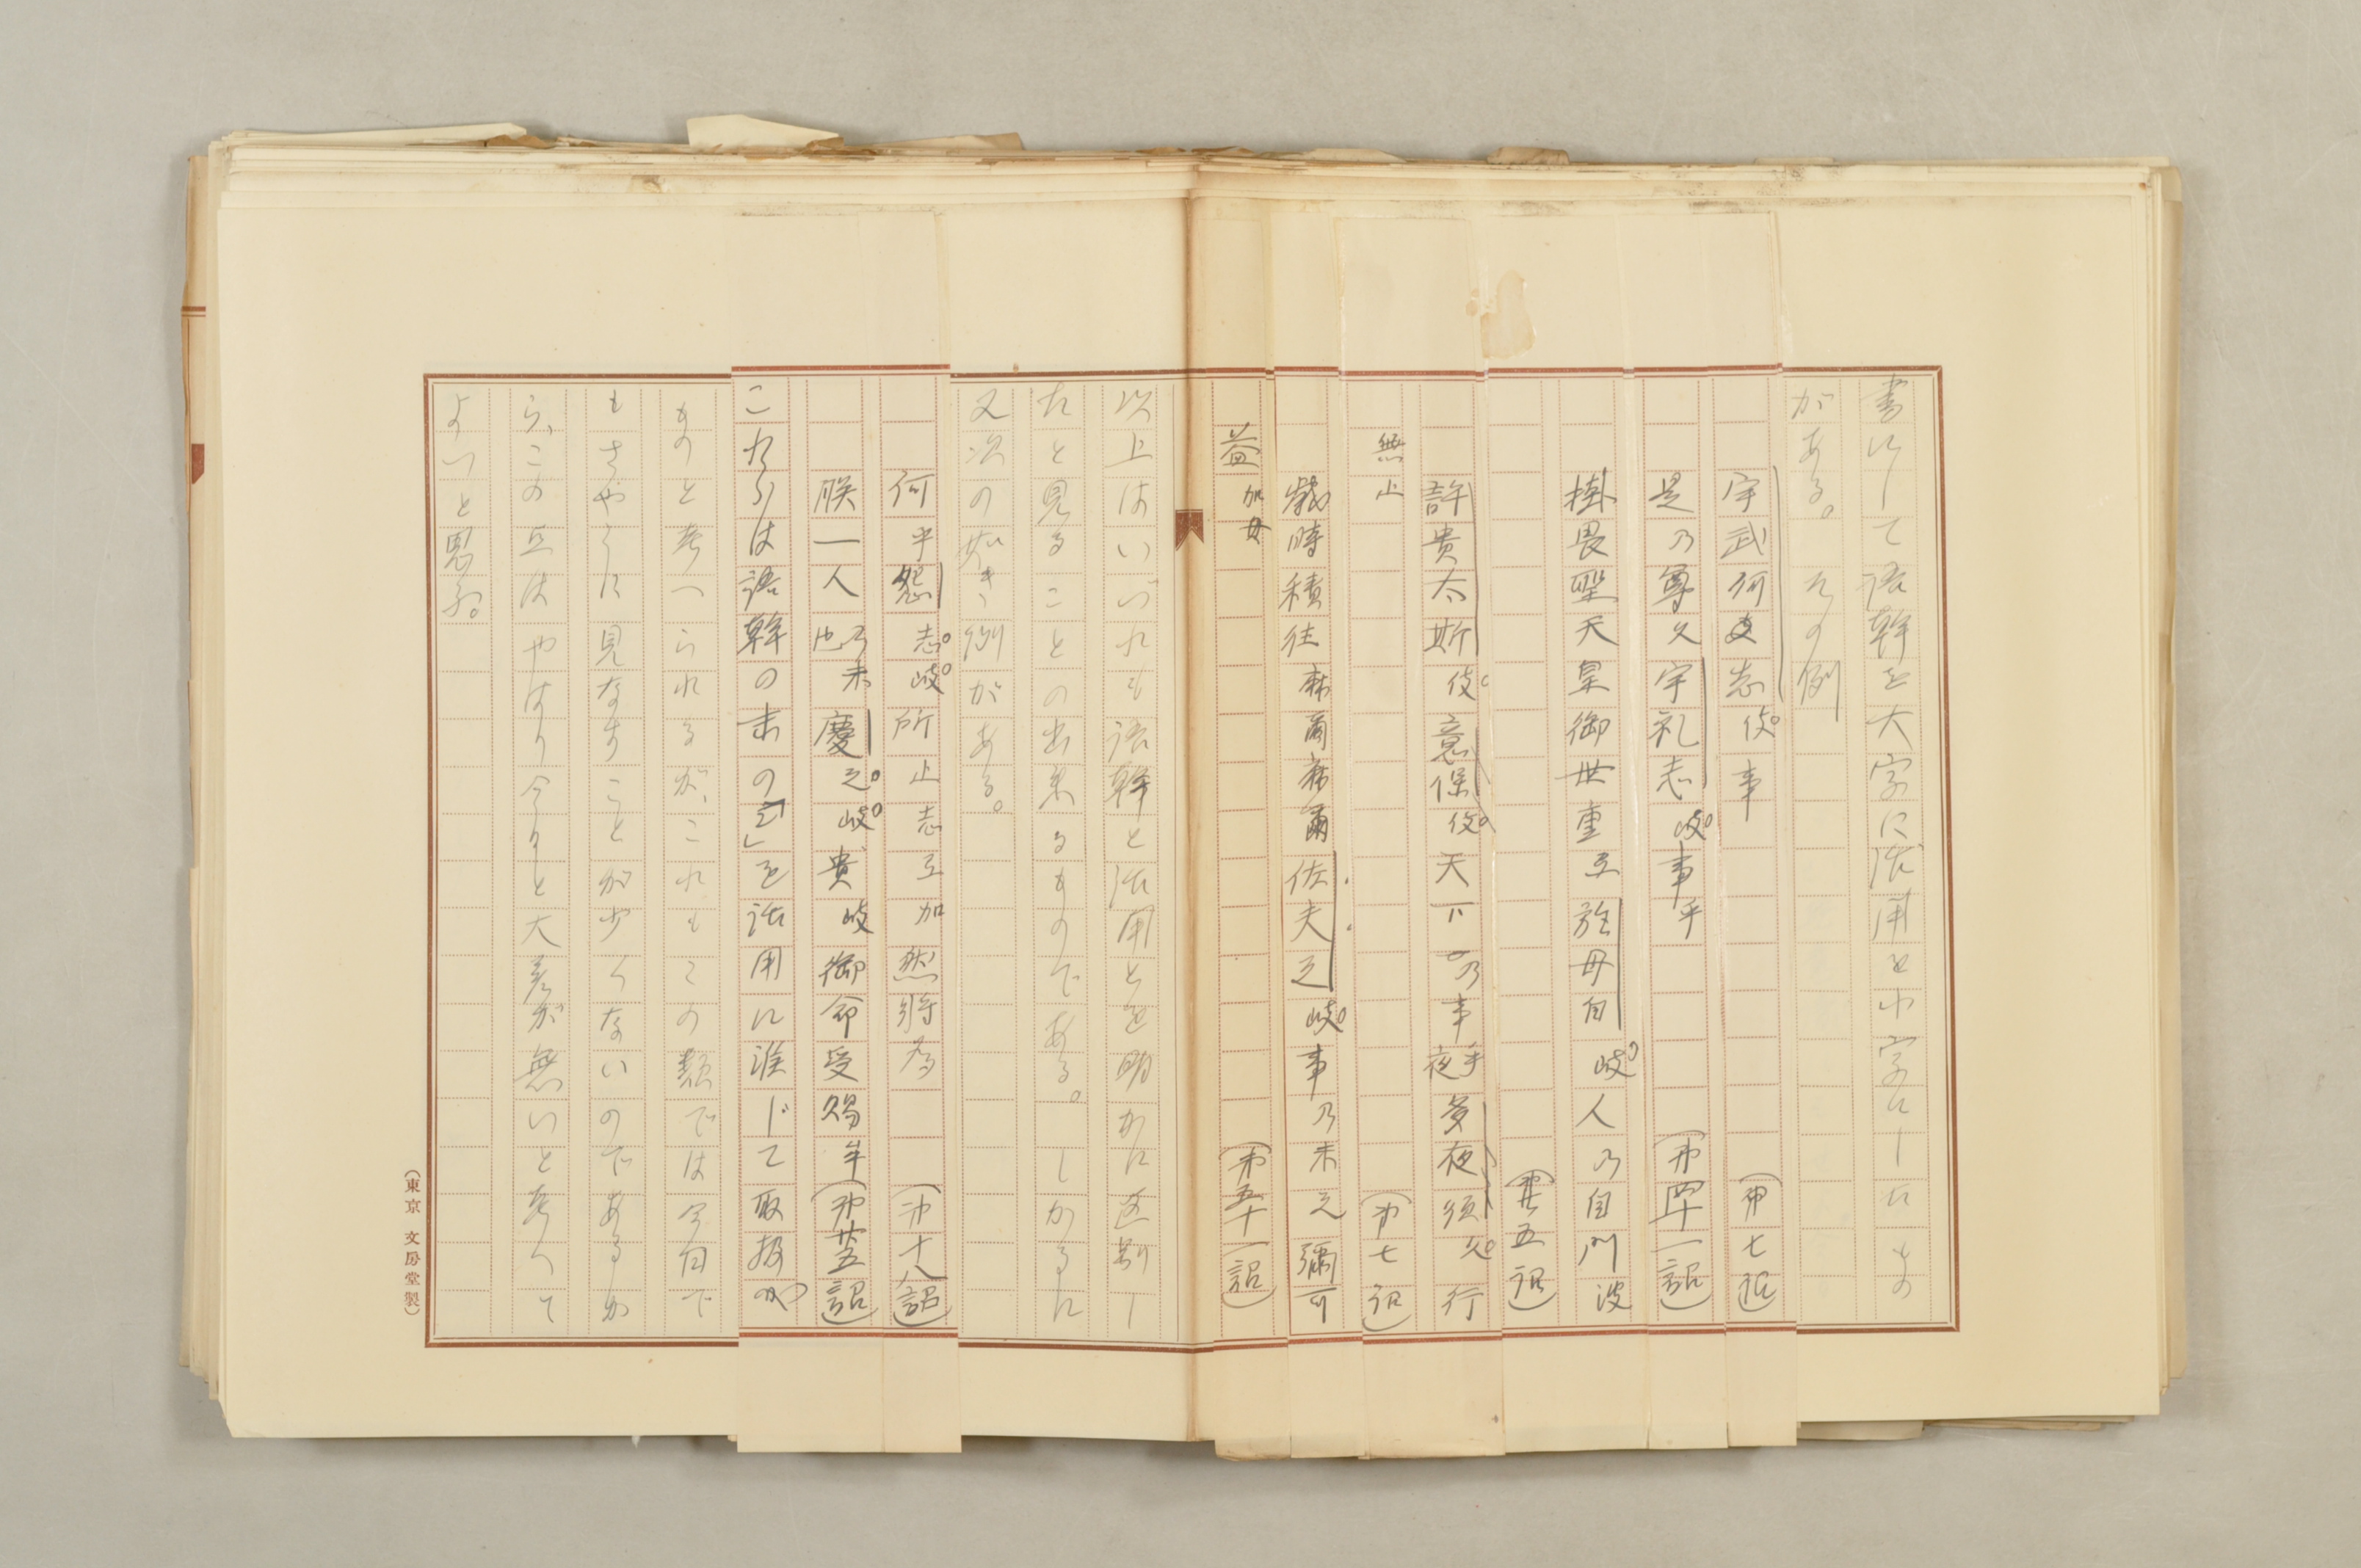 書にして語幹を大字に活用を小字にしたもの
がある。その例
宇武何多志伎事（第七詔）
是乃尊久宇礼志岐事乎（第四十一詔）
掛畏聖天皇御世重弖於母自岐人乃自門波
（第廿五詔）
許貴太斯伎意保伎天下乃事乎夜多夜須久行
無止（第七詔）
歳時積往麻爾麻爾佐夫之岐事乃未之彌可
益加母（第五十一詔）
以上はいづれも語幹と活用とを明かに区別し
たと見ることの出来るものである。しかるに
又次の如き例がある。
何乎怨志岐所止志弖加然将為（第十八詔）
朕一人乃未也慶之岐貴岐御命受賜牟（第廿五詔）
これらは語幹の末の「之」を活用に准じて取扱つた
ものと考へられるが、これもこの類では今日で
もさやうに見なすことが少くないのであるか
ら、この点はやはり今日と大差が無いと考へて
よいと思ふ。
（東京 文房堂製）